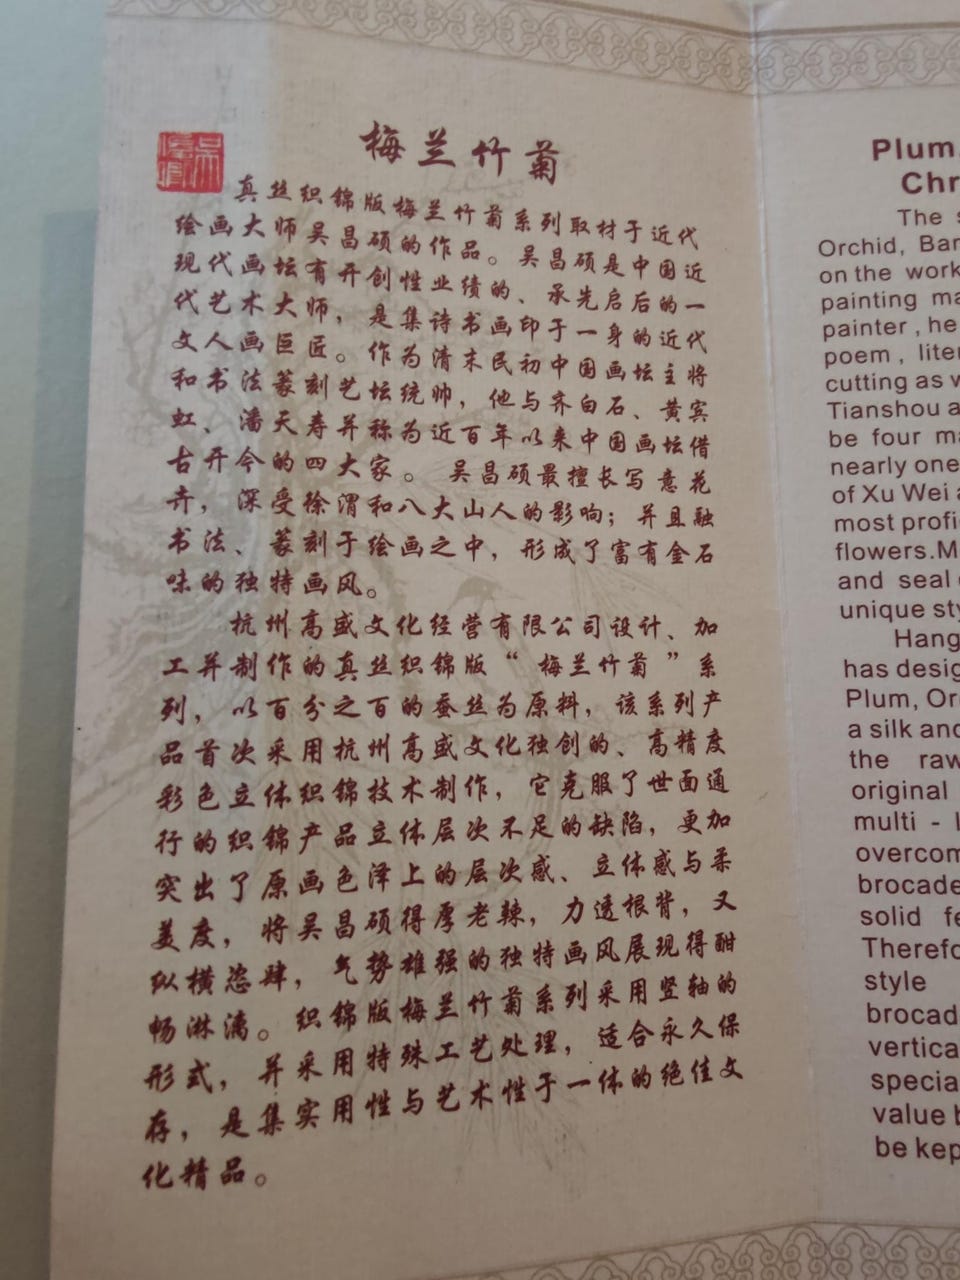 梅兰竹菊
真丝织锦版梅兰竹菊系列取材于近代
绘画大师吴昌硕的作品。吴昌硕是中国近
现代画坛有开创性业绩的、承先启后的一
代艺术大师，是集诗书画印于一身的近代
文人画巨匠。作为清末民初中国画坛主将
和书法篆刻艺坛统帅，他与齐白石、黄宾
虹、潘天寿并称为近百年以来中国画坛借
古开今的四大家。吴昌硕最擅长写意花
卉，深受徐渭和八大山人的影响；并且融
书法、篆刻于绘画之中，形成了富有金石
味的独特画风。
杭州高盛文化经营有限公司设计、加
工并制作的真丝织锦版“梅兰竹菊”系
列，以百分之百的蚕丝为原料，该系列产
品首次采用杭州高盛文化独创的、高精度
彩色立体织锦技术制作，它克服了世面通
行的织锦产品立体层次不足的缺陷，更加
突出了原画色泽上的层次感、立体感与柔
美度，将吴昌硕得厚老辣，力透根背，又
纵横恣肆，气势雄强的独特画风展现得酣
畅淋漓。织锦版梅兰竹菊系列采用竖轴的
形式，并采用特殊工艺处理，适合永久保
存，是集实用性与艺术性于一体的绝佳文
化精品。
Plum,
Chr
The
Orchid, Bam
on the work
painting ma
painter, he
poem, liter
cutting as w
Tianshou a
be four ma
nearly one
of Xu Wei a
most profi
flowers.M
and seal
unique sty
Hang
has desig
Plum, Or
a silk and
the raw
original
multi - l
overcom
brocade
solid fe
Therefo
style
brocad
vertica
specia
value b
be kep